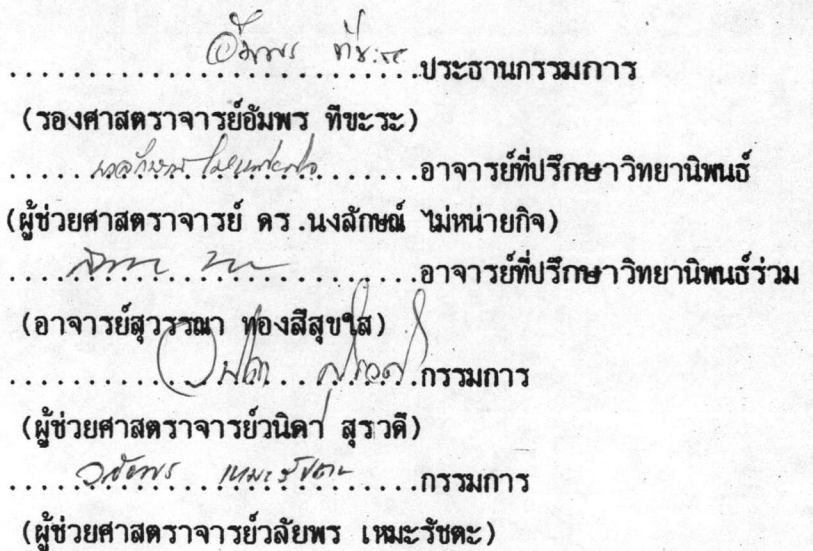 อัมพร ทีขะระ
..........................ประธานกรรมการ
(รองศาสตราจารย์อัมพร ทีขะระ)
นงลักษณ์ ไม่หน่ายกิจ
..........................อาจารย์ที่ปรึกษาวิทยานิพนธ์
(ผู้ช่วยศาสตราจารย์ ดร.นงลักษณ์ ไม่หน่ายกิจ)
..........................อาจารย์ที่ปรึกษาวิทยานิพนธ์ร่วม
(อาจารย์สุวรรณา ทองสีสุขใส)
..........................กรรมการ
(ผู้ช่วยศาสตราจารย์วนิดา สุรวดี)
วลัยพร เหมะรัชตะ
..........................กรรมการ
(ผู้ช่วยศาสตราจารย์วลัยพร เหมะรัชตะ)